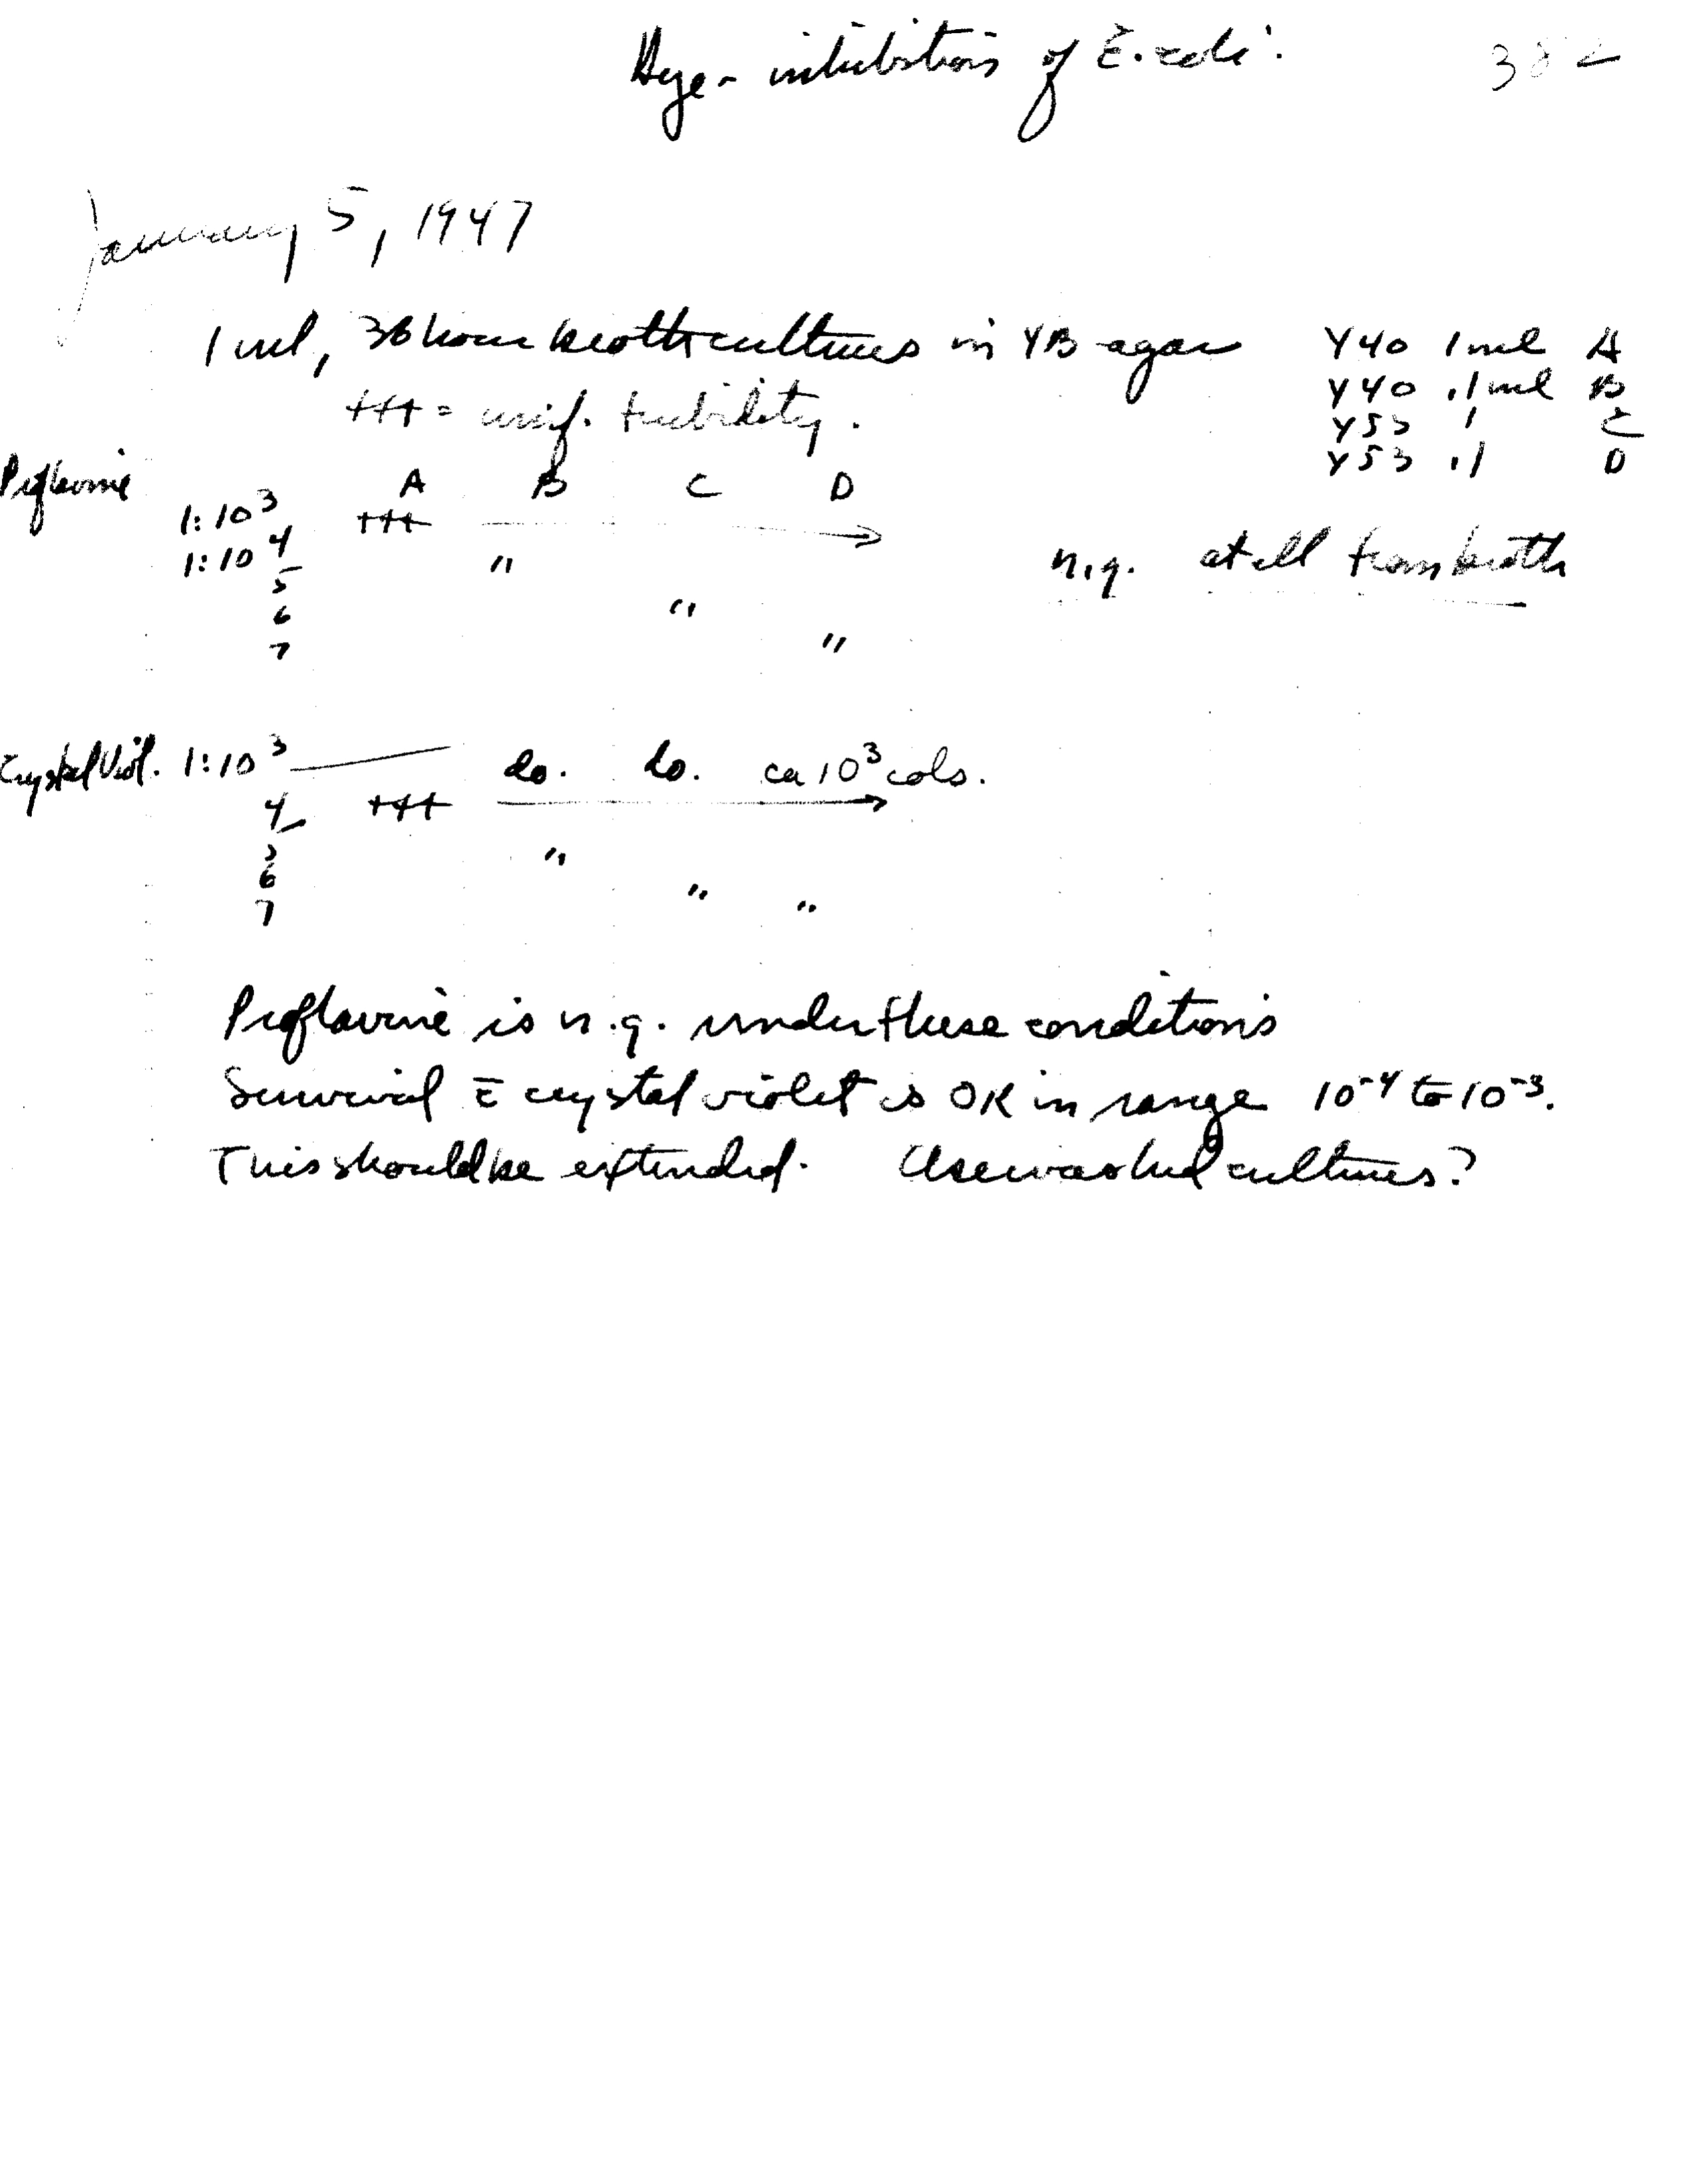 Dye-inhibitions of E. coli. 382
January 5, 1947
1 ml, 36 hour broth cultures in YB agar Y40 1 ml A
+++ = unif. turbidity. Y40 .1 ml B
Y53 1 C
Y53 .1 D
Proflavine A B C D
1:10³ +++ →
1:10⁴ " n.g. at all from broth
5
6 "
7 "
Crystal Viol. 1:10³ — do. do. ca 10³ cols.
4 +++ →
5 "
6 "
7 "
Proflavine is n.g. under these conditions
Survival c̄ crystal violet is OK in range 10⁻⁴ to 10⁻³.
This should be extended. Use washed cultures?